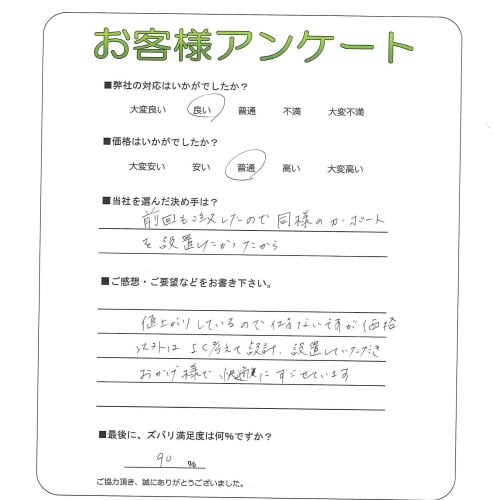 お客様アンケート
■弊社の対応はいかがでしたか？
大変良い 良い 普通 不満 大変不満
■価格はいかがでしたか？
大変安い 安い 普通 高い 大変高い
■当社を選んだ決め手は？
前回も注文したので同様のカーポート
を設置したかったから
■ご感想・ご要望などをお書き下さい。
値上がりしているので仕方ないですが価格
以外は よく考えて設計、設置していただき
おかげ様で 快適にすごせています
■最後に、ズバリ満足度は何％ですか？
90 ％
ご協力頂き、誠にありがとうございました。